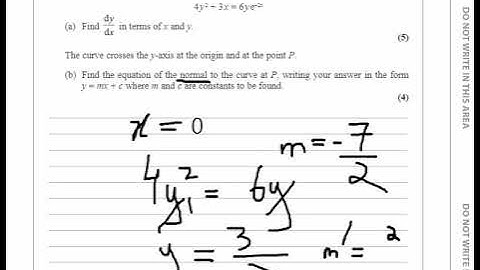 4y² + 3x = 6ye⁻²ˣ
(a) Find dy/dx in terms of x and y.
(5)
The curve crosses the y-axis at the origin and at the point P.
(b) Find the equation of the normal to the curve at P, writing your answer in the form
y = mx + c where m and c are constants to be found.
(4)
x = 0
m = -7/2
4y² = 6y
1
y = 3/
m' = 2
DO NOT WRITE IN THIS AREA
DO NOT WRITE